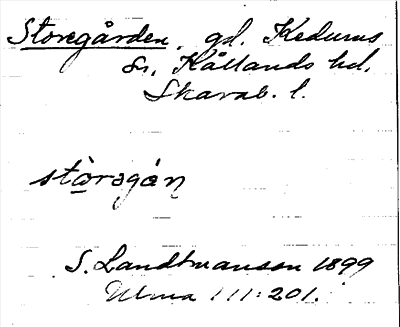 Storegården, gd. Kedums
sn, Kållands hd.
Skarab. l.
stòragán
S. Landtmanson 1899
Ulma 111:201.